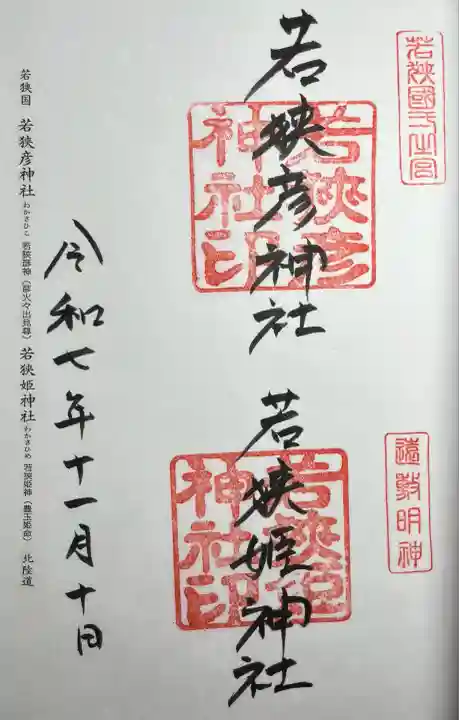 若狹國一之宮
遠敷明神
若狹彦神社
若狹彦神社印
若狹姫神社
若狹姫神社印
令和七年十一月十日
若狭国 若狭彦神社 わかさひこ 若狭彦神(彦火々出見尊) 若狭姫神社 わかさひめ 若狭姫神(豊玉姫命) 北陸道